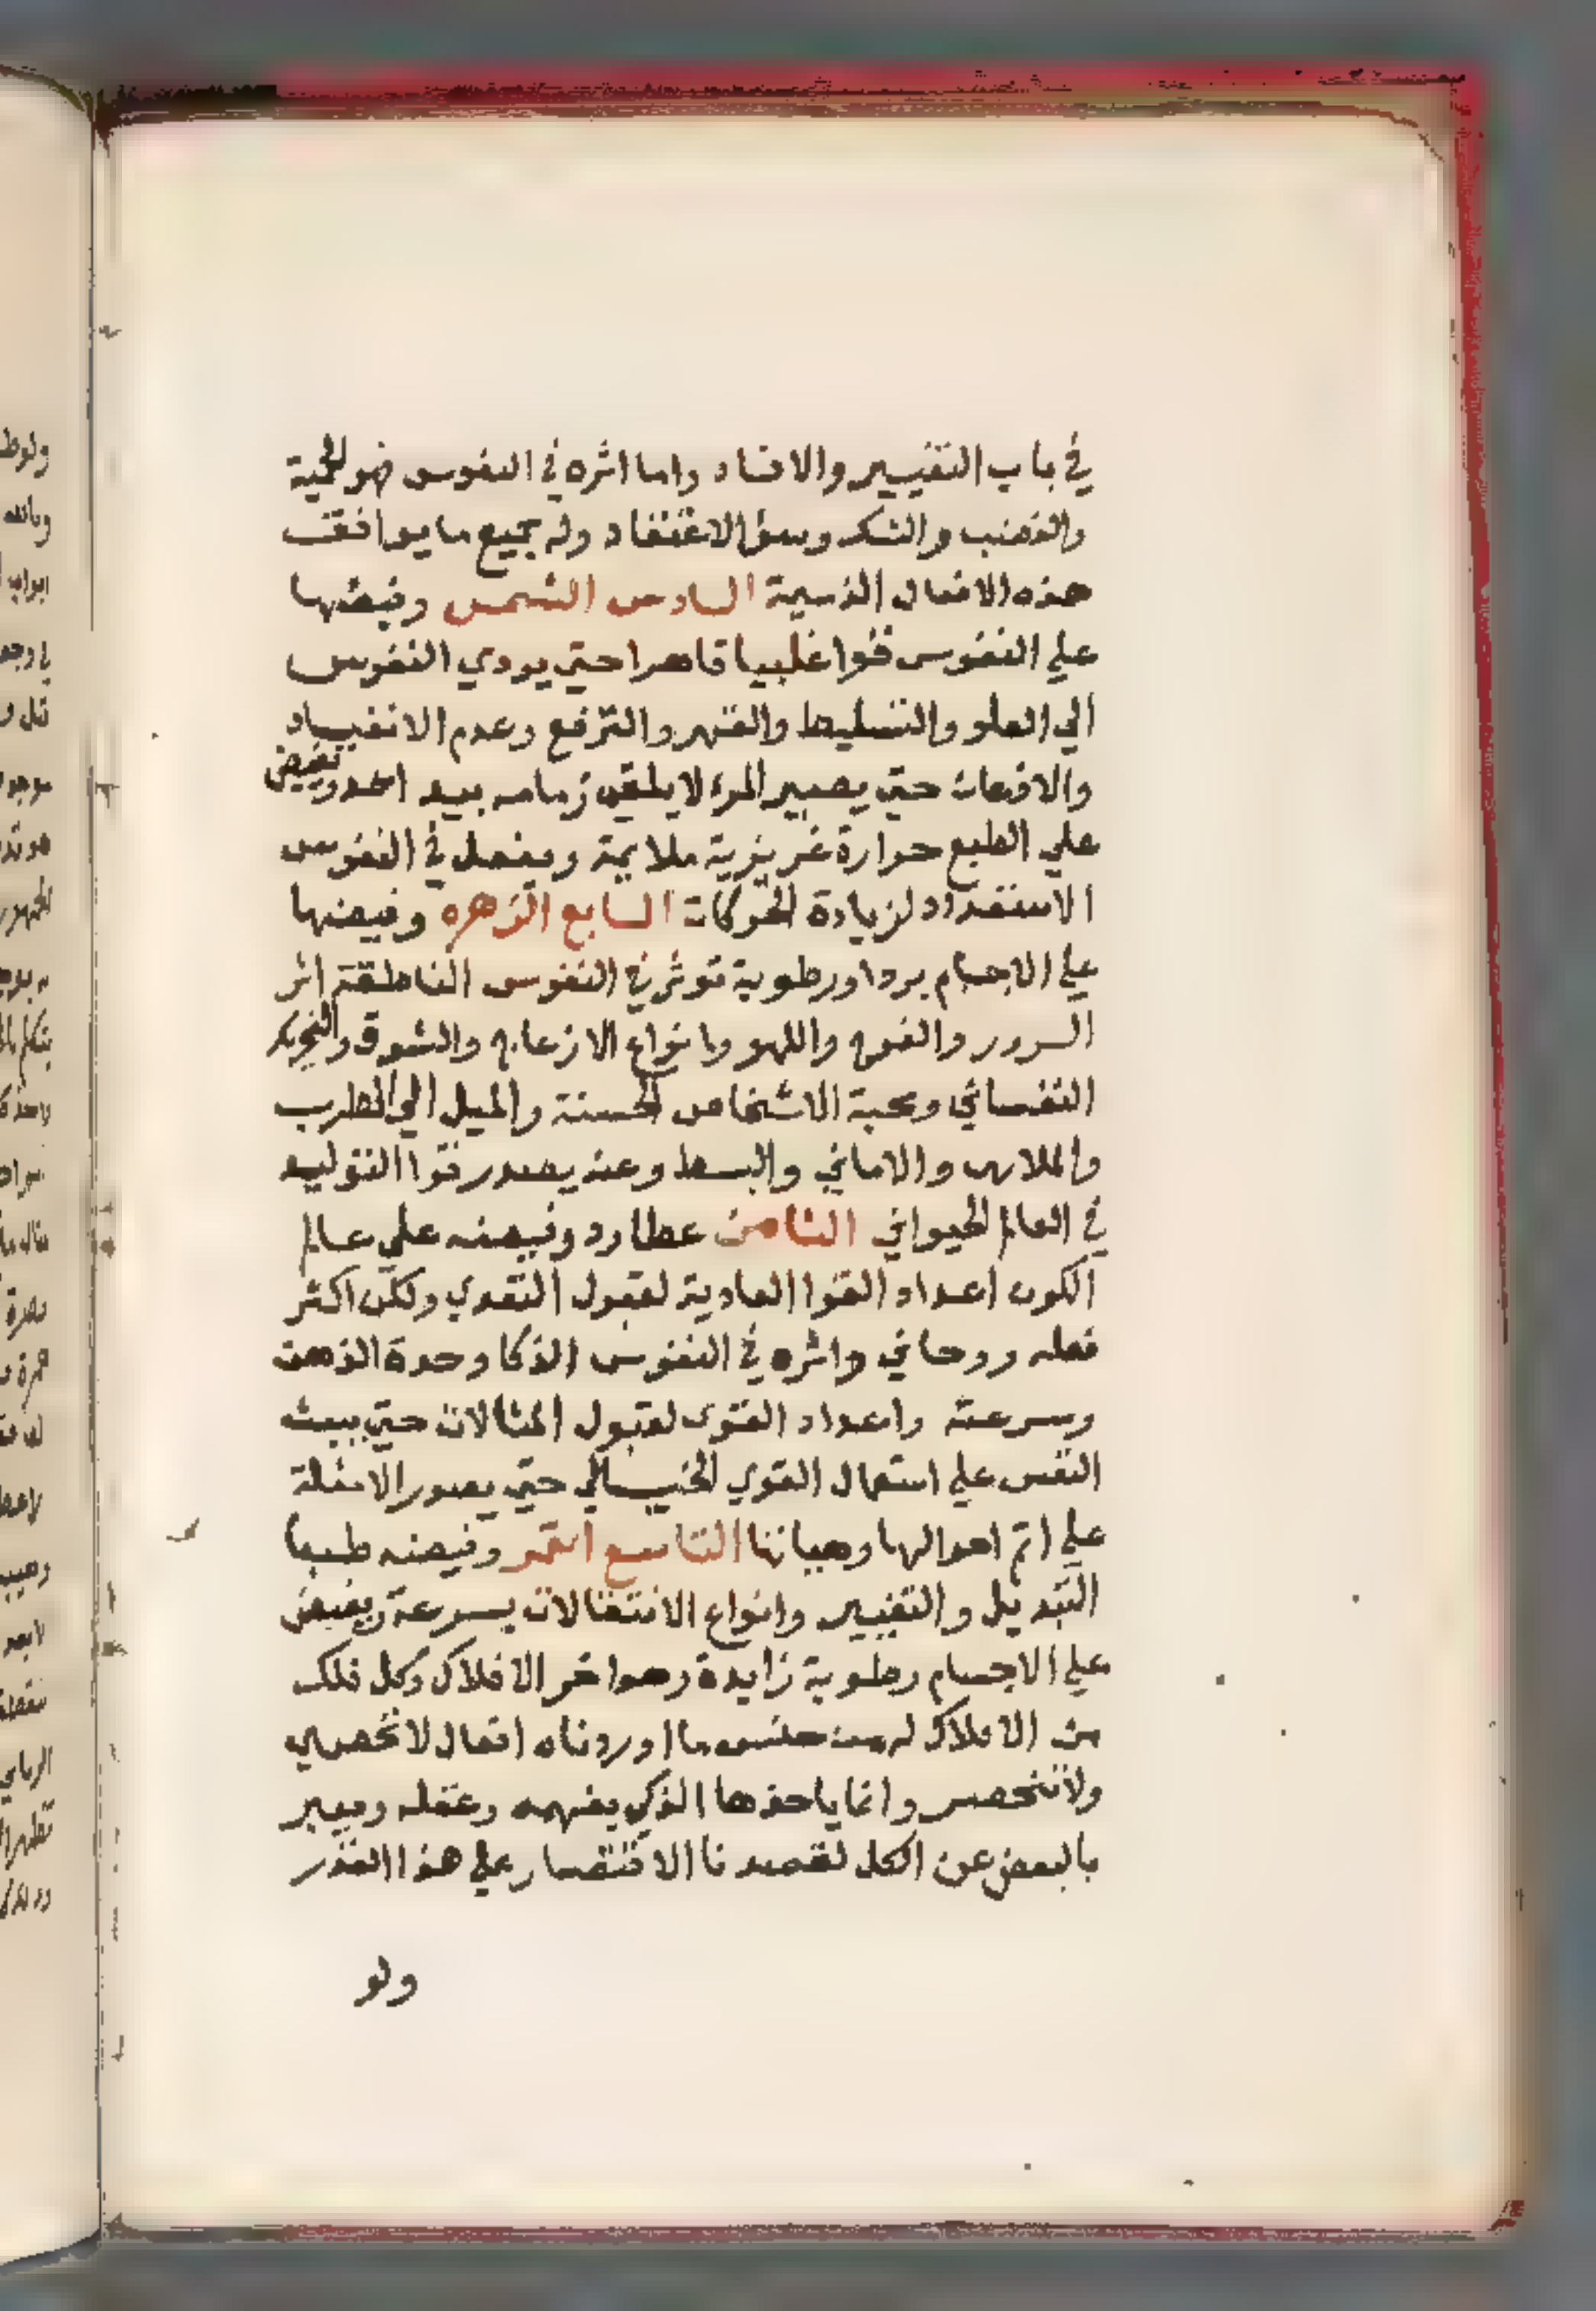 في باب التغيير والافساد واما اثره في النفوس فهو الحمية
والغضب والشكر وسؤ الاعتقاد وله جميع ما يوافقت
هذه الافعال الذميمة السادس الشمس وفيضها
علي النفوس قوا غلبيا قاهرا حتي يودي النفوس
الي العلو والتسليط والقهر والترفع وعدم الانقياد
والاذعان حتي يصير المرء لا يلقي زمامه بيد احد ويفيض
علي الطبع حرارة غريزية ملايمة ويفعل في النفوس
الاستعداد لزيادة الحركات السابع الزهره وفيضها
علي الاجسام بردا ورطوبة توثر في النفوس الناطقة اثر
السرور والفرح واللهو وانواع الازعاج والشوق والتحريك
النفساني ومحبة الاشخاص الحسنة والميل الي الطرب
والملاهي والاماني والبسط وعنه يصدر قوا التوليد
في العالم الحيواني الثامن عطارد وفيضه علي عالم
الكون اعداد القوا العادية لقبول التعدي ولكن اكثر
فعله روحاني واثره في النفوس الذكا وحدة الذهن
وسرعته واعداد القوي لقبول المثالات حتي يبعث
النفس علي استعمال القوي الخيالي حتي يصور الامثلة
علي اتم احوالها وهيأتها التاسع القمر وفيضه طبعا
التبديل والتغيير وانواع الانتقالات بسرعة ويفيض
علي الاجسام رطوبة زايدة وهو اخر الافلاك وكل فلك
من الافلاك له من جنس ما اوردناه افعال لا تحصي
ولا تنحصر وانما ياخذها الذكي بفهمه وعقله ويعبر
بالبعض عن الكل لقصدنا الاقتصار علي هذا القدر
ولو